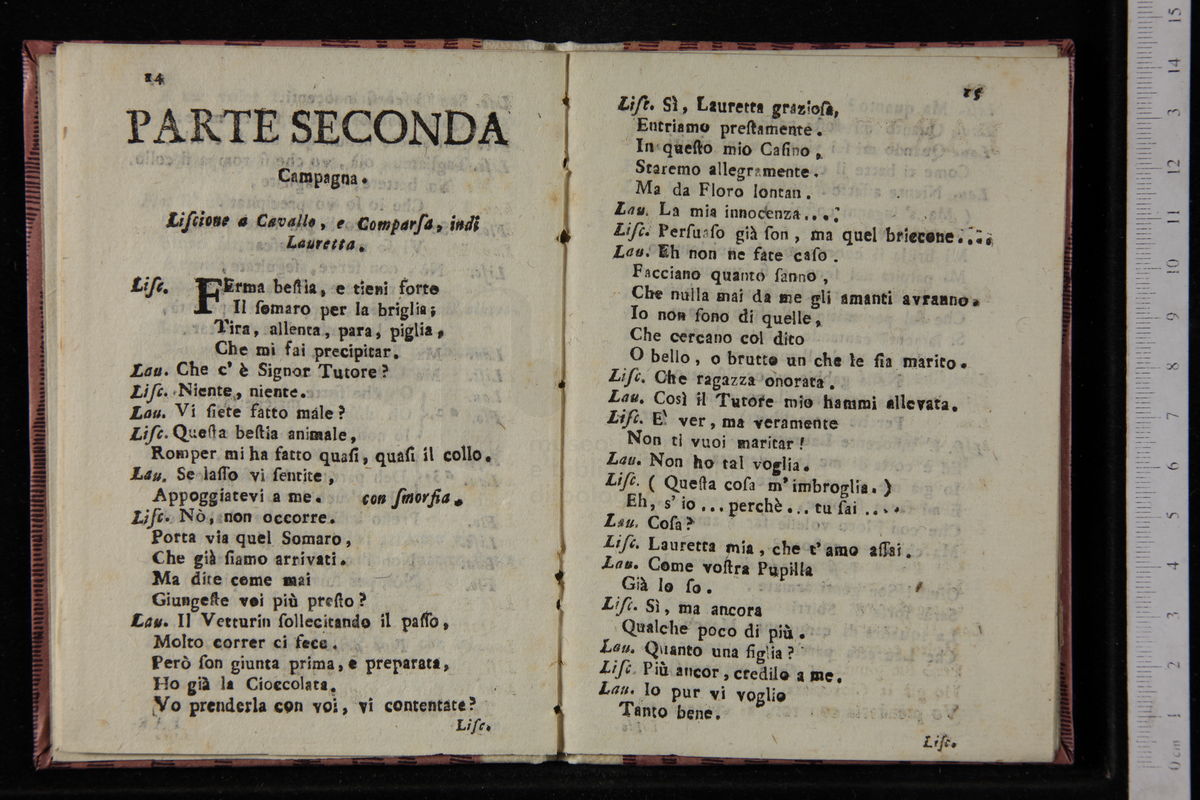 14
PARTE SECONDA
Campagna.
Liſcione a Cavallo, e Comparſa, indi
Lauretta.
Liſc. FErma beſtia, e tieni forte
Il ſomaro per la briglia;
Tira, allenta, para, piglia,
Che mi fai precipitar.
Lau. Che c' è Signor Tutore?
Liſc. Niente, niente.
Lau. Vi ſiete fatto male?
Liſc. Queſta beſtia animale,
Romper mi ha fatto quaſi, quaſi il collo.
Lau. Se laſſo vi ſentite,
Appoggiatevi a me. con ſmorfia.
Liſc. Nò, non occorre.
Porta via quel Somaro,
Che già ſiamo arrivati.
Ma dite come mai
Giungeſte voi più preſto?
Lau. Il Vetturin ſollecitando il paſſo,
Molto correr ci fece.
Però ſon giunta prima, e preparata,
Ho già la Cioccolata.
Vo prenderla con voi, vi contentate?
Liſc.
15
Liſc. Sì, Lauretta grazioſa,
Entriamo preſtamente.
In queſto mio Caſino,
Staremo allegramente.
Ma da Floro lontan.
Lau. La mia innocenza....
Liſc. Perſuaſo già ſon, ma quel briccone....
Lau. Eh non ne fate caſo.
Facciano quanto ſanno,
Che nulla mai da me gli amanti avranno.
Io non ſono di quelle,
Che cercano col dito
O bello, o brutto un che le ſia marito.
Liſc. Che ragazza onorata.
Lau. Così il Tutore mio hammi allevata.
Liſc. E' ver, ma veramente
Non ti vuoi maritar!
Lau. Non ho tal voglia.
Liſc. ( Queſta coſa m' imbroglia. )
Eh, s' io... perchè... tu ſai ....
Lau. Coſa?
Liſc. Lauretta mia, che t' amo aſſai.
Lau. Come voſtra Pupilla
Già lo ſo.
Liſc. Sì, ma ancora
Qualche poco di più.
Lau. Quanto una figlia?
Liſc. Più ancor, credilo a me.
Lau. Io pur vi voglio
Tanto bene.
Liſc.
0 cm 1 2 3 4 5 6 7 8 9 10 11 12 13 14 15